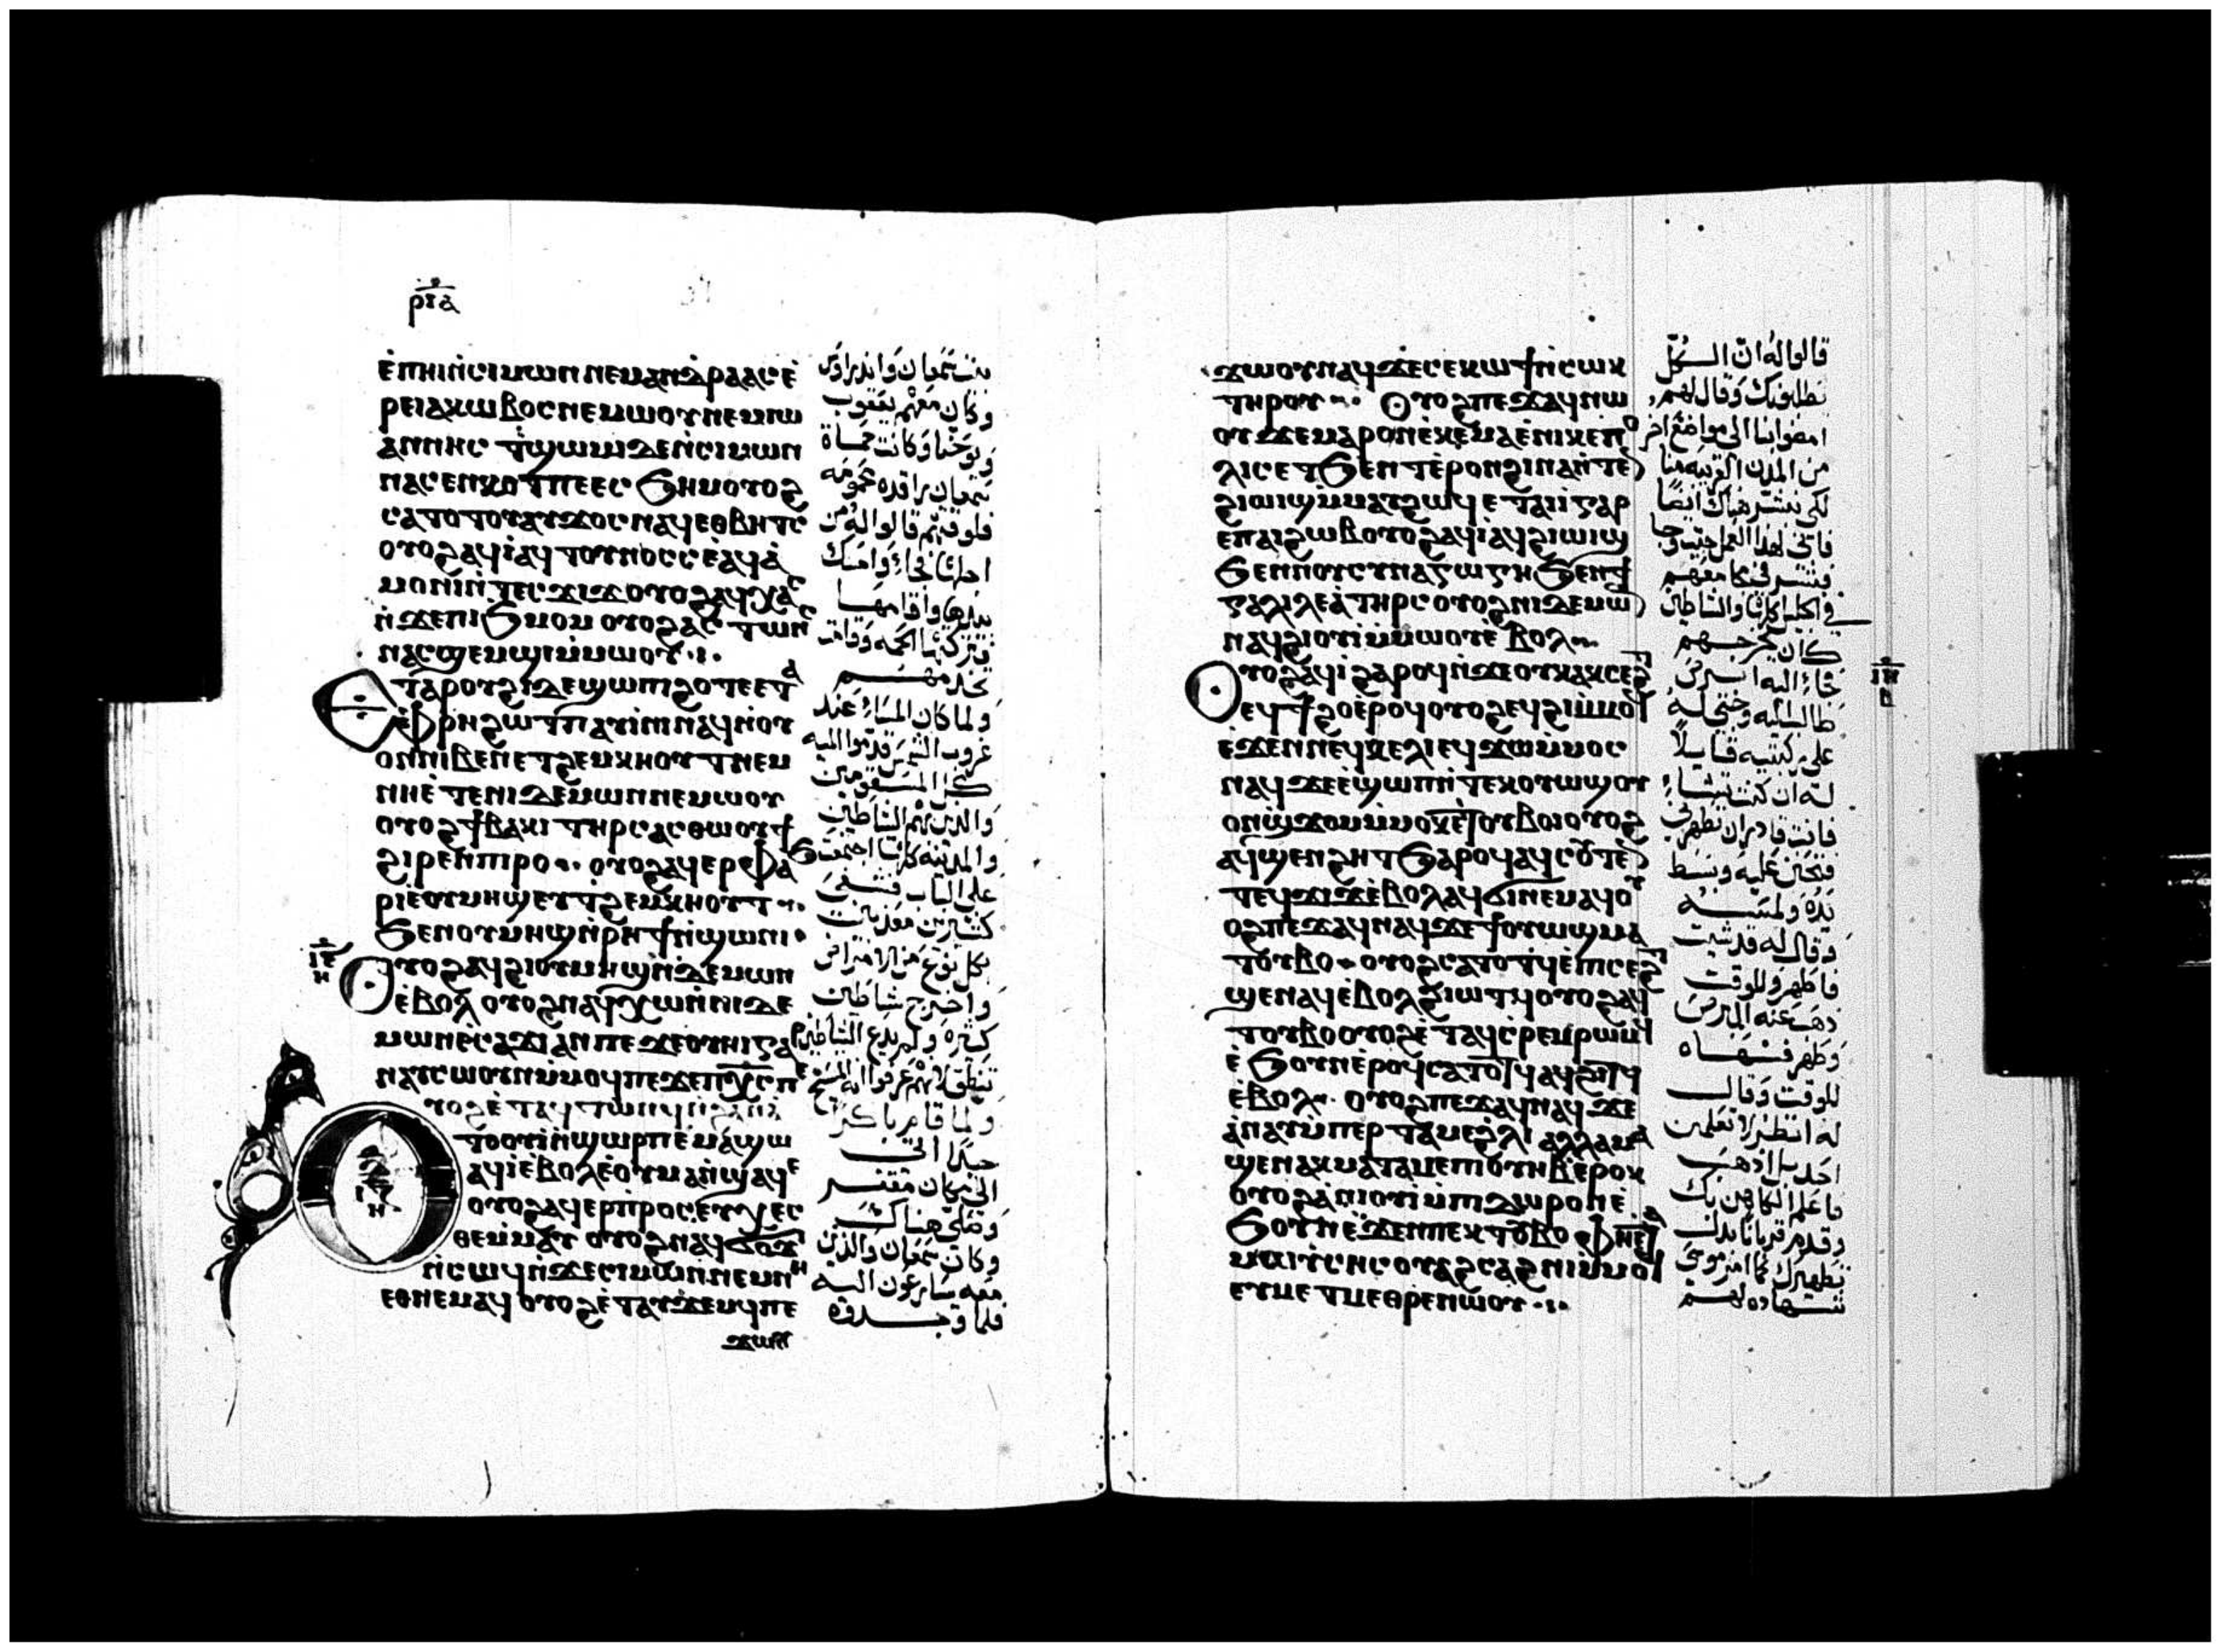 ⲣⲓⲁ
ⲉ̀ⲡⲏⲓⲛ̀ⲥⲓⲙⲱⲛⲛⲉⲙⲁⲛⲇⲣⲁⲁⲥⲉ̀
ⲣⲉⲓⲁⲕⲱⲃⲟⲥⲛⲉⲙⲱⲟⲩⲛⲉⲙⲓⲱ
ⲁⲛⲛⲏⲥ ⲧ̀ϣⲱⲙⲓⲇⲉⲛ̀ⲥⲓⲙⲱⲛ
ⲛⲁⲥⲉⲛⲕⲟⲧⲡⲉⲉⲥϧⲏⲙⲟⲩⲟϩ
ⲥⲁⲧⲟⲧⲟⲩⲁⲩϫⲟⲥⲛⲁϥⲉⲑⲃⲏⲧⲥ
ⲟⲩⲟϩⲁϥⲓ̀ⲁϥⲧⲟⲩⲛⲟⲥⲥⲉ̀ⲁϥⲁ̀
ⲙⲟⲛⲓⲛ̀ⲧⲉⲥϫⲓϫⲟⲩⲟϩⲁϥⲭⲁⲥ
ⲛ̀ϫⲉⲡⲓϧⲙⲟⲙ ⲟⲩⲟϩⲁⲥⲧⲱⲛⲥ
ⲛⲁⲥϣⲉⲙϣⲓⲙ̀ⲙⲱⲟⲩ
ⲉⲧⲁⲣⲟⲩϩⲓⲇⲉϣⲱⲡⲓϩⲟⲧⲉⲉⲧⲁ
ⲉ̀ⲫⲣⲏϩⲱⲧⲡⲁⲩⲓ̀ⲛⲓⲛⲁϥⲛ̀ⲟⲩ
ⲟⲛⲛⲓⲃⲉⲛⲉⲧϩⲉⲙⲕⲏⲟⲩⲧⲛⲉⲙ
ⲛⲏⲉ̀ⲧⲉⲛⲓⲇⲉⲙⲱⲛⲛⲉⲙⲱⲟⲩ
ⲟⲩⲟϩϯⲃⲁⲕⲓ ⲧⲏⲣⲥⲁⲥⲑⲱⲟⲩϯ
ϩⲓⲣⲉⲛⲡⲓⲣⲟ ⲟⲩⲟϩⲁϥⲉⲣⲫⲁ
ⲣⲓⲉⲟⲩⲙⲏϣⲉⲩⲧ̀ϩⲉⲙⲕⲏⲟⲩⲧ
ϧⲉⲛⲟⲩⲙⲏϣⲛ̀ⲣⲏϯⲛ̀ϣⲱⲛⲓ
ⲓⲉ
ⲏ
ⲟⲩⲟϩⲁϥϩⲓⲟⲩⲙⲏϣⲛ̀ⲇⲉⲙⲱⲛ
ⲉ̀ⲃⲟⲗ ⲟⲩⲟϩⲛⲁϥⲭⲱⲛ̀ⲛⲓⲇⲉ
ⲙⲱⲛⲉ̀ⲥⲁϫⲓⲁⲛⲡⲉϫⲉⲟⲩⲏⲓⲅⲁⲣ
ⲛⲁⲩⲥⲱⲟⲩⲛⲙ̀ⲙⲟϥⲡⲉϫⲉⲡⲭ̅ⲥ̅ⲡⲉ
ⲧⲟⲟⲩⲓ̀ⲛ̀ϣⲱⲣⲡⲉ̀ⲙⲁϣⲱ
ⲁϥⲓ̀ⲉ̀ⲃⲟⲗⲉ̀ⲟⲩⲙⲁⲛ̀ϣⲁϥⲉ
ⲟⲩⲟϩⲁϥⲉⲣⲡ̀ⲣⲟⲥⲉⲩⲭⲉⲥ
ⲑⲉⲙ̀ⲙⲁⲩ ⲟⲩⲟϩⲛⲁϥϭⲟϫⲓ
ⲛ̀ⲥⲱϥⲛ̀ϫⲉⲥⲓⲙⲱⲛⲛⲉⲙⲛⲏ
ⲉⲑⲛⲉⲙⲁϥ ⲟⲩⲟϩⲉ̀ⲧⲁⲩϫⲉⲙϥⲡⲉ
بيت سمعان واندراوس
وكان معهم يعقوب
ويوحنا وكانت حماة
سمعان راقده محمومه
فللوقت قالوا له من
اجلها فجاء وامسك
بيدها واقامها
فتركتها الحمه وقامت
تخدمهم
ولما كان المساء عند
غروب الشمس قدموا اليه
كل المسقومين
والذين بهم الشياطين
والمدينه كلها اجتمعت
على الباب فشفى
كثيرين معذبين
بكل نوع من الامراض
واخرج شياطين
كثيره ولم يدع الشياطين
تنطق لانهم عرفوا انه المسيح
ولما قام باكرا
جدا اتى
الى مكان مقفر
وصلى هناك
وكان سمعان والذين
معه سايرون اليه
فلما وجدوه
ϫⲱⲟⲩⲛⲁϥϫⲉⲥⲉⲕⲱϯⲛ̀ⲥⲱⲕ
ⲧⲏⲣⲟⲩ ⲟⲩⲟϩⲡⲉϫⲁϥⲛⲱ
ⲟⲩϫⲉⲙⲁⲣⲟⲛⲉ̀ⲕⲉⲙⲁⲉ̀ⲛⲓⲕⲉⲡⲟ
ⲗⲓⲥⲉⲧϧⲉⲛⲧⲉ̀ⲣⲟⲛϩⲓⲛⲁⲛ̀ⲧⲉ
ϩⲓⲱⲓϣⲙ̀ⲙⲁⲩϩⲱϥⲉⲧⲁⲓⲓ̀ⲅⲁⲣ
ⲉⲡⲁⲓϩⲱⲃⲟⲩⲟϩⲁϥⲓ̀ⲁϥϩⲓⲱⲓϣ
ϧⲉⲛⲛⲟⲩⲥⲩⲛⲁⲅⲱⲅⲏϧⲉⲛϯ
ⲅⲁⲗⲓⲗⲉⲁ̀ⲧⲏⲣⲥⲟⲩⲟϩⲛⲓⲇⲉⲙⲱ
ⲛⲁϥϩⲓⲟⲩⲓ̀ⲙ̀ⲙⲱⲟⲩⲉ̀ⲃⲟⲗ
ⲟⲩⲟϩⲁϥⲓ̀ϩⲁⲣⲟϥⲛ̀ϫⲉⲟⲩⲕⲁⲕⲥⲉϩⲧ
ⲉϥϯϩⲟⲉ̀ⲣⲟϥⲟⲩⲟϩⲉϥϩⲓⲟⲩⲓ
ⲉ̀ϫⲉⲛⲛⲉϥⲕⲉⲗⲓⲉϥϫⲱⲙ̀ⲙⲟⲥ
ⲛⲁϥϫⲉⲉ̀ϣⲱⲡⲛ̀ⲧⲉⲕⲟⲩⲱϣⲟⲩ
ⲟⲛϣϫⲟⲙⲙ̀ⲙⲟⲕⲉ̀ⲧⲟⲩⲃⲟⲓⲟⲩⲟϩ
ⲁϥϣⲉⲛϩⲏⲧϧⲁⲣⲟϥⲁϥⲥⲟⲩⲧⲉⲛ
ⲧⲉϥϫⲓϫⲉ̀ⲃⲟⲗⲁϥϭⲓⲛⲉⲙⲁϥⲟⲩ
ⲟϩⲡⲉϫⲁϥⲛⲁϥϫⲉϯⲟⲩⲱϣⲙⲁ
ⲧⲟⲩⲃⲟ ⲟⲩⲟϩⲥⲁⲧⲟⲧϥⲉ̀ⲡⲓⲥⲉϩⲧ
ϣⲉⲛⲁϥⲉ̀ⲃⲟⲗϩⲓⲱⲧϥⲟⲩⲟϩⲁϥ
ⲧⲟⲩⲃⲟⲟⲩⲟϩⲉ̀ⲧⲁϥⲥ̀ⲣⲉⲙⲣⲱⲙ
ⲉ̀ϧⲟⲩⲛⲉ̀ⲣⲟϥⲥⲁⲧⲟⲧϥⲁϥϩⲓⲧϥ
ⲉ̀ⲃⲟⲗ ⲟⲩⲟϩⲡⲉϫⲁϥⲛⲁϥϫⲉ
ⲁ̀ⲛⲁⲩⲙ̀ⲡⲉⲣⲧⲁⲙⲉϩ̀ⲗⲓⲁⲗⲗⲁⲙⲁ
ϣⲉⲛⲁⲕⲙⲁⲧⲁⲙⲉⲡⲓⲟⲩⲏⲃⲉ̀ⲣⲟⲕ
ⲟⲩⲟϩⲁ̀ⲛⲓⲟⲩⲓ̀ⲙ̀ⲡⲓⲇⲱⲣⲟⲛⲉ̀
ϧⲟⲩⲛⲉ̀ϫⲉⲛⲡⲉⲕⲧⲟⲩⲃⲟⲫⲏⲉⲧⲁ
ⲙⲱⲩ̀ⲥⲏⲥⲟⲩⲁϩⲥⲁϩⲛⲓⲙ̀ⲙⲟϥ
ⲉⲩⲙⲉⲧⲙⲉⲑⲣⲉⲛⲱⲟⲩ
قالوا له ان الكل
يطلبونك وقال لهم
امضوا بنا الى مواضع اخر
من المدن القريبه منا
لكي نبشر هناك ايضا
فاني لهذا العمل جيت وجا
فبشر في مجامعهم
في الجليل كلها والشياطين
كان يخرجهم
ⲓⲏ
فجاء اليه ابرص
طالبا اليه وجثى له
على ركبتيه قايلا
له ان كنت تشاء
فانت قادر ان تطهرني
فتحنن عليه وبسط
يده ولمسه
وقال له قد شيت
فاطهر وللوقت
ذهب عنه البرص
وطهر فنهاه
للوقت وقال
له انظر لا تعلمن
احد بل اذهب
فاعلم الكاهن بك
وقدم قربانا بدل
تطهيرك كما امر موسى
شهاده لهم